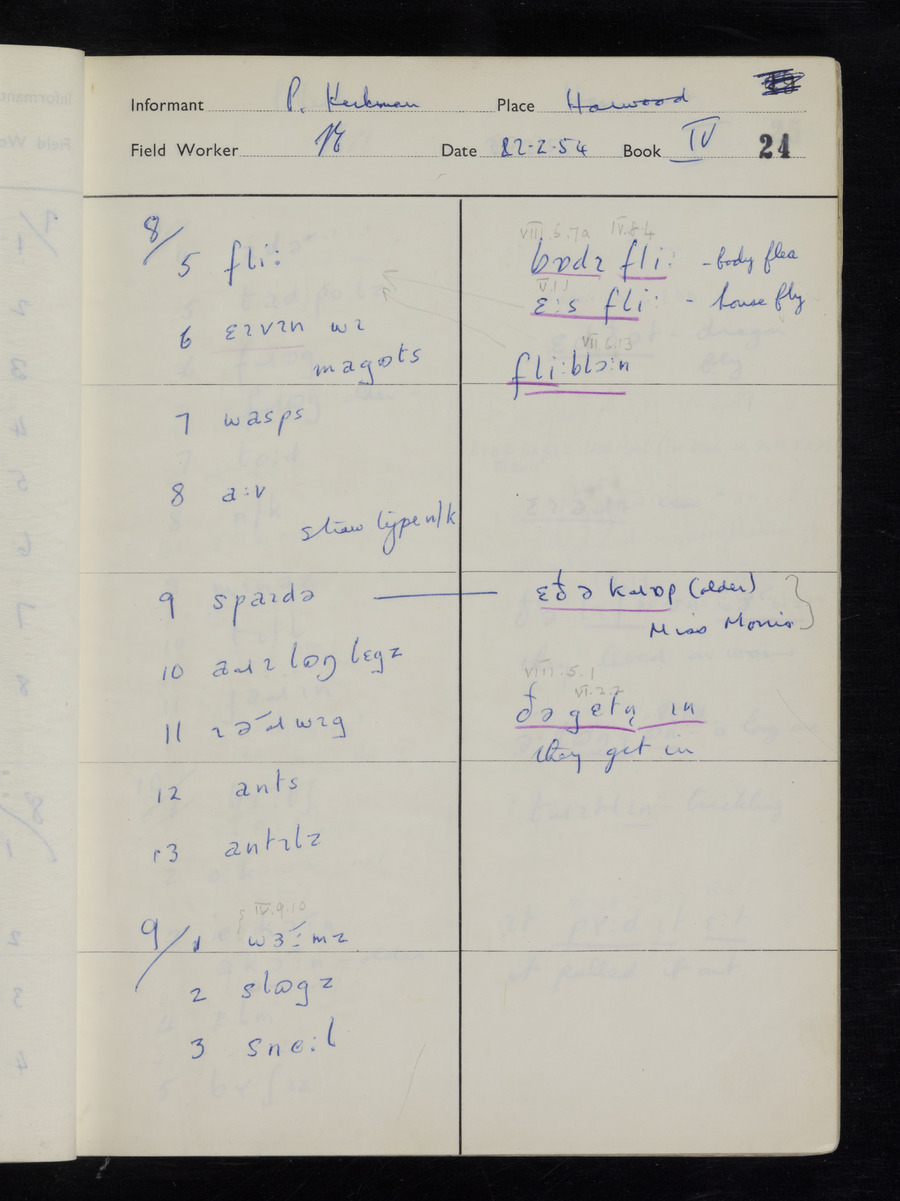 Informant P. Kerkman Place Harwood
Field Worker Date 22-2-54 Book IV 24
8/
5 fliː
6 ɛɪvɪn wɪ
magɒts
7 wasps
8 aːv
straw type n/k
9 spaɪdə
10 aɹɪ lɒŋ legz
11 ɪəɹwɪg
12 ants
13 antɪlz
IV.9.10
9/1 wɜːmz
2 slɒgz
3 sneːl
VIII.5.7a IV.8.4
bɒdɪ fliː - body flea
V.1.1
ɛːs fliː - house fly
VII.6.13
fliːblɔːn
ɛðə kɹɒp (older)
Miss Morris
VIII.5.1
VI.2.2
ðə gɛtn̩ ɪn
they get in